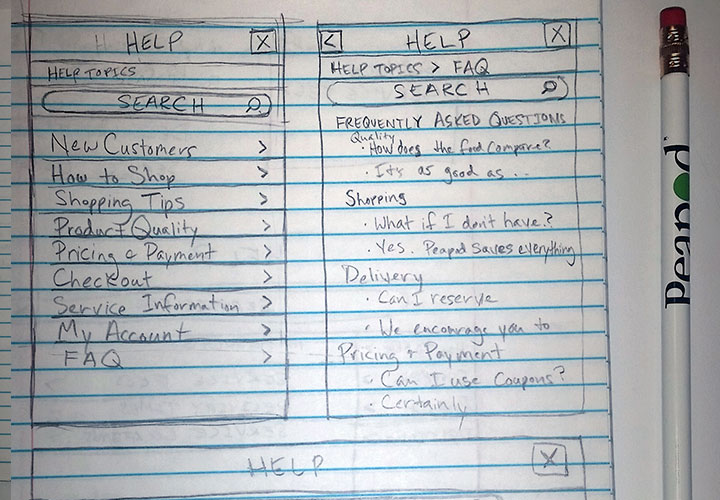 HELP X
HELP TOPICS
SEARCH
New Customers >
How to Shop >
Shopping Tips >
Product Quality >
Pricing & Payment >
Checkout >
Service Information >
My Account >
FAQ >
< HELP X
HELP TOPICS > FAQ
SEARCH
FREQUENTLY ASKED QUESTIONS
Quality
· How does the food compare?
· It's as good as ...
Shopping
· What if I don't have?
· Yes. Peapod saves everything
Delivery
· Can I reserve
· We encourage you to
Pricing & Payment
· Can I use Coupons?
· Certainly
HELP X
Peapod